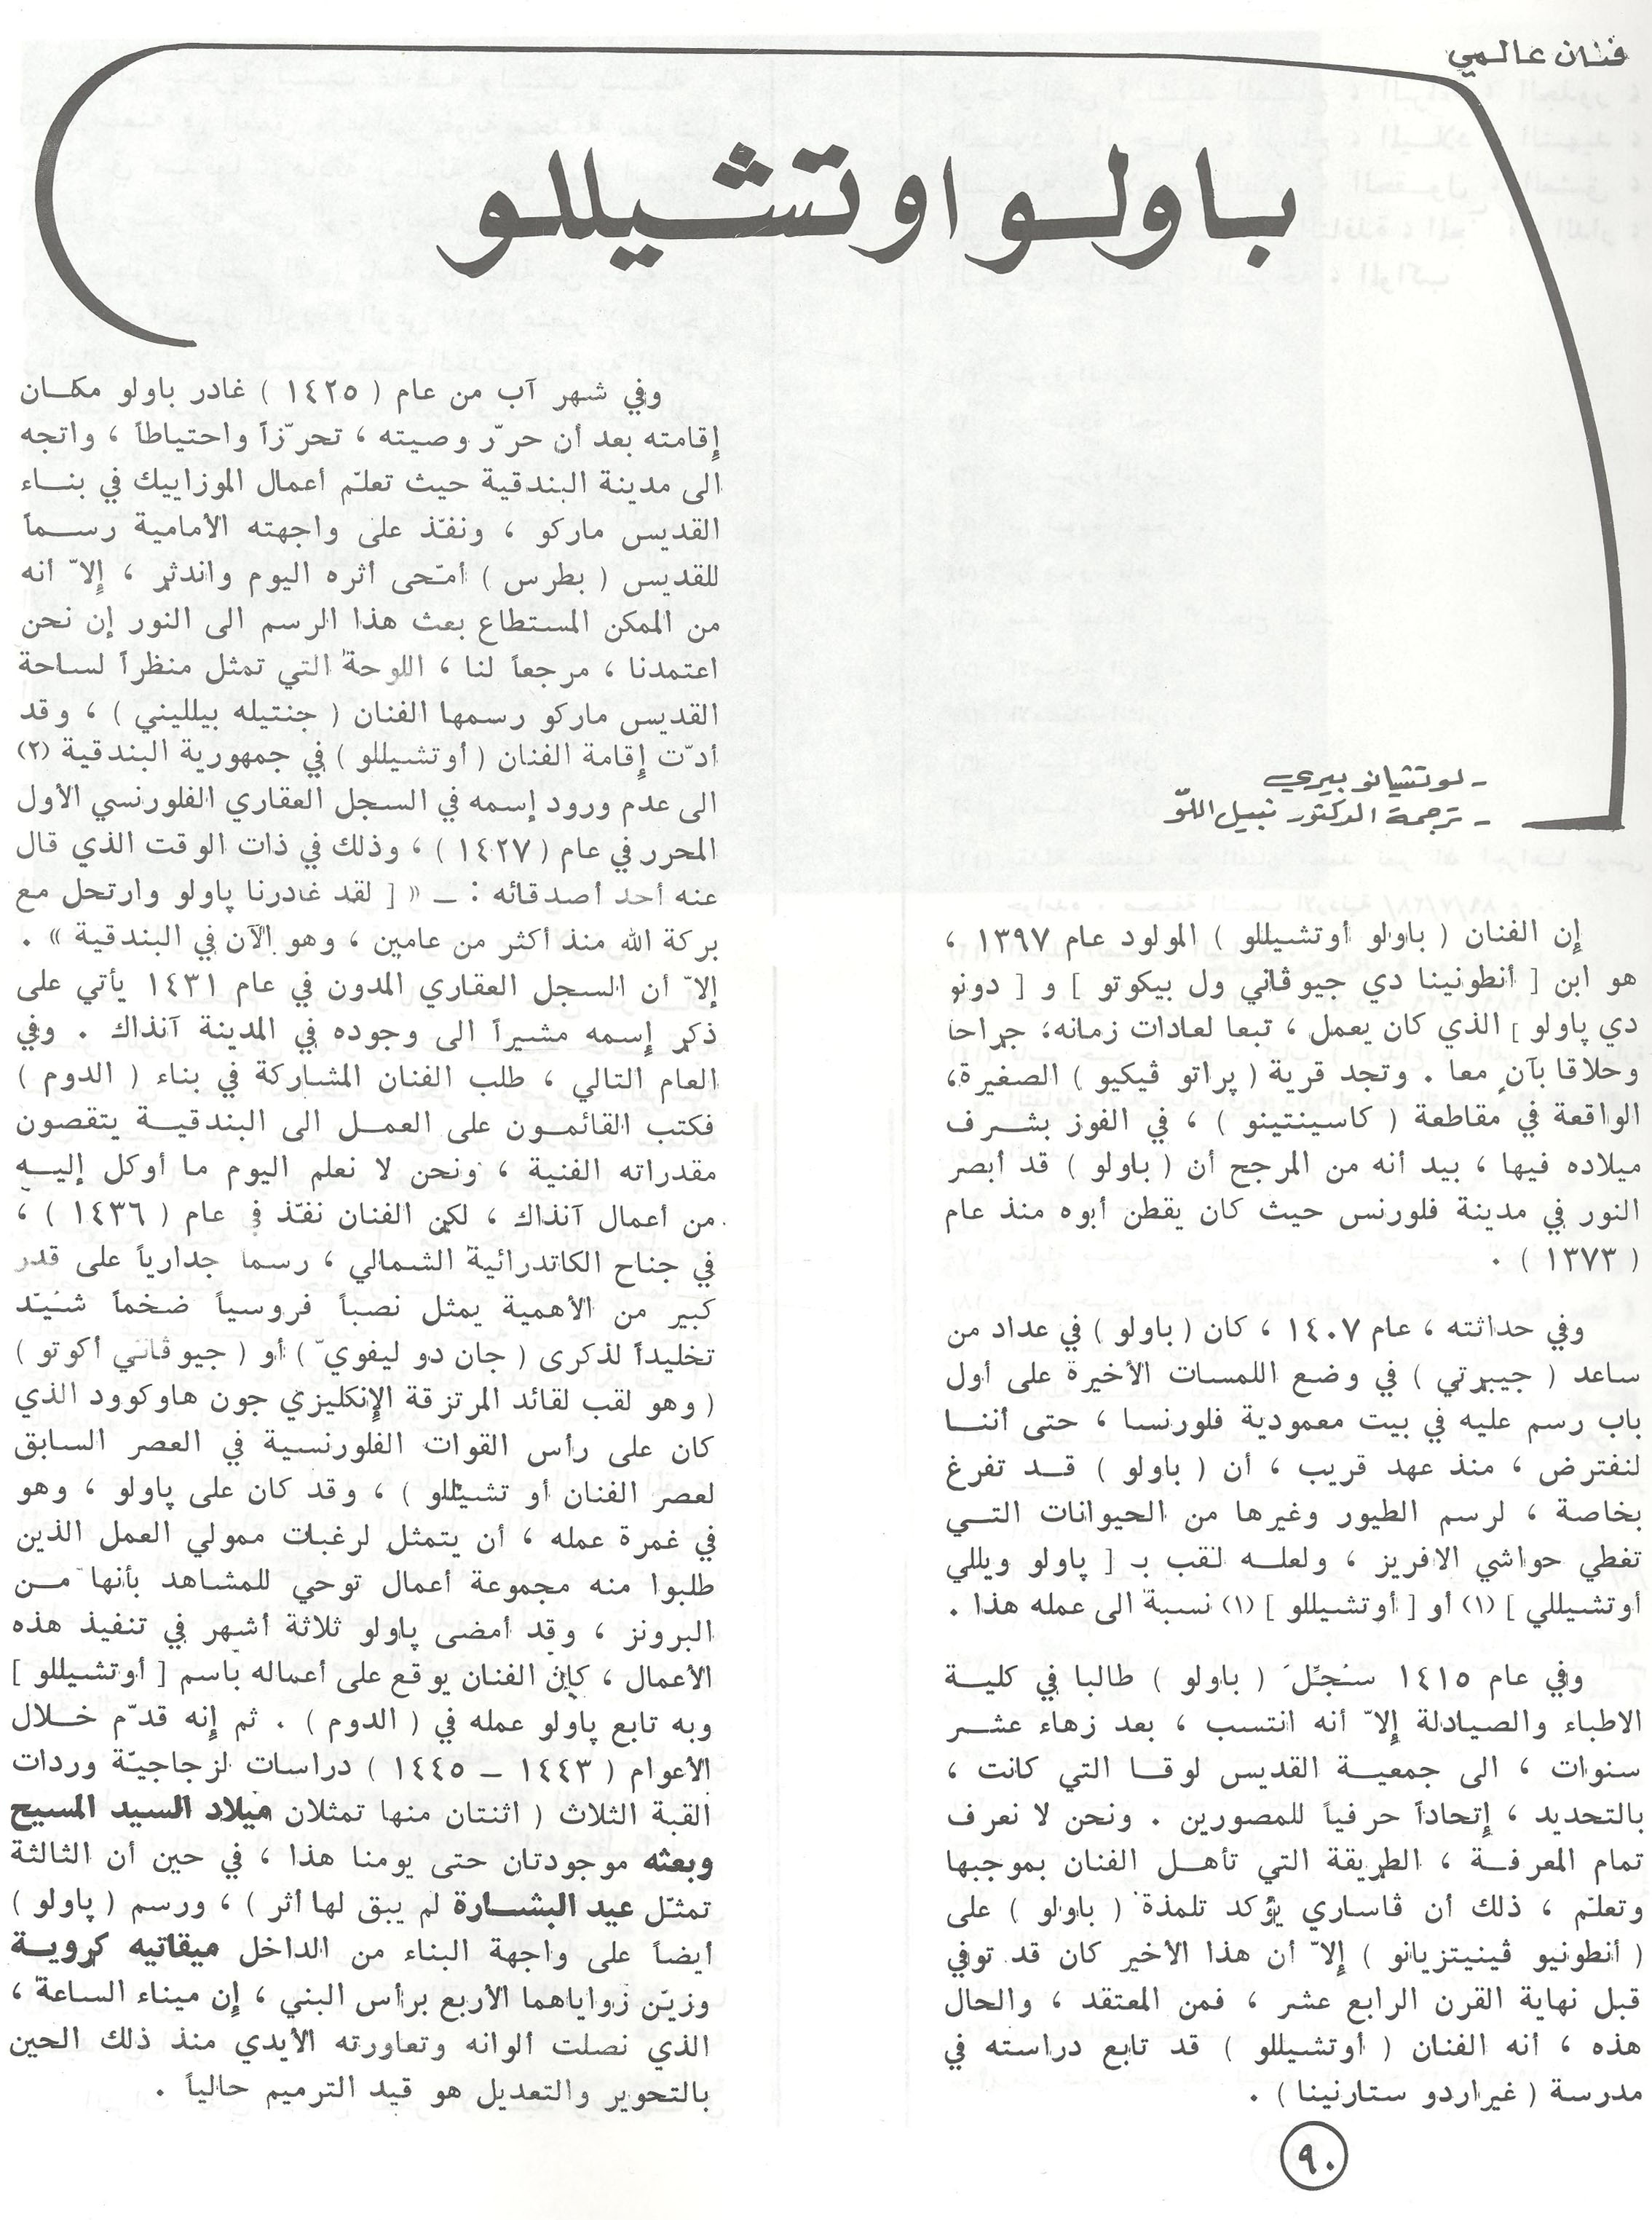 فنان عالمي
باولو اوتشيللو
- لوتشيانو بيري
- ترجمة الدكتور نبيل اللوّ
إن الفنان ( باولو أوتشيللو ) المولود عام ١٣٩٧ ،
هو ابن [ أنطونينا دي جيوڤاني ول بيكوتو ] و [ دونو
دي پاولو ] الذي كان يعمل ، تبعا لعادات زمانه، جراحا
وحلاقا بآنٍ معا . وتجد قرية ( پراتو ڤيكيو ) الصغيرة،
الواقعة في مقاطعة ( كاسينتينو ) ، في الفوز بشرف
ميلاده فيها ، بيد أنه من المرجح أن ( باولو ) قد أبصر
النور في مدينة فلورنس حيث كان يقطن أبوه منذ عام
( ١٣٧٣ ) .
وفي حداثته ، عام ١٤٠٧ ، كان ( باولو ) في عداد من
ساعد ( جيبرتي ) في وضع اللمسات الأخيرة على أول
باب رسم عليه في بيت معمودية فلورنسا ، حتى أننا
لنفترض ، منذ عهد قريب ، أن ( باولو ) قد تفرغ
بخاصة ، لرسم الطيور وغيرها من الحيوانات التي
تغطي حواشي الافريز ، ولعله لقب بـ [ پاولو ويللي
أوتشيللي ] (١) أو [ أوتشيللو ] (١) نسبة الى عمله هذا .
وفي عام ١٤١٥ سُجِّلَ ( باولو ) طالبا في كلية
الاطباء والصيادلة إلاّ أنه انتسب ، بعد زهاء عشر
سنوات ، الى جمعية القديس لوقا التي كانت ،
بالتحديد ، إتحاداً حرفياً للمصورين . ونحن لا نعرف
تمام المعرفة ، الطريقة التي تأهل الفنان بموجبها
وتعلم ، ذلك أن ڤاساري يؤكد تلمذة ( باولو ) على
( أنطونيو ڤينيتزيانو ) إلاّ أن هذا الأخير كان قد توفي
قبل نهاية القرن الرابع عشر ، فمن المعتقد ، والحال
هذه ، أنه الفنان ( أوتشيللو ) قد تابع دراسته في
مدرسة ( غيراردو ستارنينا ) .
وفي شهر آب من عام ( ١٤٢٥ ) غادر باولو مكان
إقامته بعد أن حرّر وصيته ، تحرّزاً واحتياطاً ، واتجه
الى مدينة البندقية حيث تعلّم أعمال الموزاييك في بناء
القديس ماركو ، ونفّذ على واجهته الأمامية رسماً
للقديس ( بطرس ) امّحى أثره اليوم واندثر ، إلاّ أنه
من الممكن المستطاع بعث هذا الرسم الى النور إن نحن
اعتمدنا ، مرجعاً لنا ، اللوحة التي تمثل منظراً لساحة
القديس ماركو رسمها الفنان ( جنتيله بيلليني ) ، وقد
أدّت إقامة الفنان ( أوتشيللو ) في جمهورية البندقية (٢)
الى عدم ورود إسمه في السجل العقاري الفلورنسي الأول
المحرر في عام ( ١٤٢٧ ) ، وذلك في ذات الوقت الذي قال
عنه أحد أصدقائه : – « [ لقد غادرنا پاولو وارتحل مع
بركة الله منذ أكثر من عامين ، وهو الآن في البندقية » .
إلاّ أن السجل العقاري المدون في عام ١٤٣١ يأتي على
ذكر إسمه مشيراً الى وجوده في المدينة آنذاك . وفي
العام التالي ، طلب الفنان المشاركة في بناء ( الدوم )
فكتب القائمون على العمل الى البندقية يتقصون
مقدراته الفنية ، ونحن لا نعلم اليوم ما أوكل إليه
من أعمال آنذاك ، لكن الفنان نفّذ في عام ( ١٤٣٦ ) ،
في جناح الكاتدرائية الشمالي ، رسما جدارياً على قدر
كبير من الأهمية يمثل نصباً فروسياً ضخماً شُيّد
تخليداً لذكرى ( جان دو ليفويّ ) أو ( جيوڤاني أكوتو )
( وهو لقب لقائد المرتزقة الإنكليزي جون هاوكوود الذي
كان على رأس القوات الفلورنسية في العصر السابق
لعصر الفنان أو تشيللو ) ، وقد كان على پاولو ، وهو
في غمرة عمله ، أن يتمثل لرغبات ممولي العمل الذين
طلبوا منه مجموعة أعمال توحي للمشاهد بأنها من
البرونز ، وقد أمضى پاولو ثلاثة أشهر في تنفيذ هذه
الأعمال ، كان الفنان يوقع على أعماله باسم [ أوتشيللو ]
وبه تابع پاولو عمله في ( الدوم ) . ثم إنه قدّم خلال
الأعوام ( ١٤٤٣ – ١٤٤٥ ) دراسات لزجاجيّة وردات
القبة الثلاث ( اثنتان منها تمثلان ميلاد السيد المسيح
وبعثه موجودتان حتى يومنا هذا ، في حين أن الثالثة
تمثّل عيد البشارة لم يبق لها أثر ) ، ورسم ( پاولو )
أيضاً على واجهة البناء من الداخل ميقاتيه كروية
وزيّن زواياهما الأربع برأس البني ، إن ميناء الساعة ،
الذي نصلت ألوانه وتعاورته الأيدي منذ ذلك الحين
بالتحوير والتعديل هو قيد الترميم حالياً .
٩٠